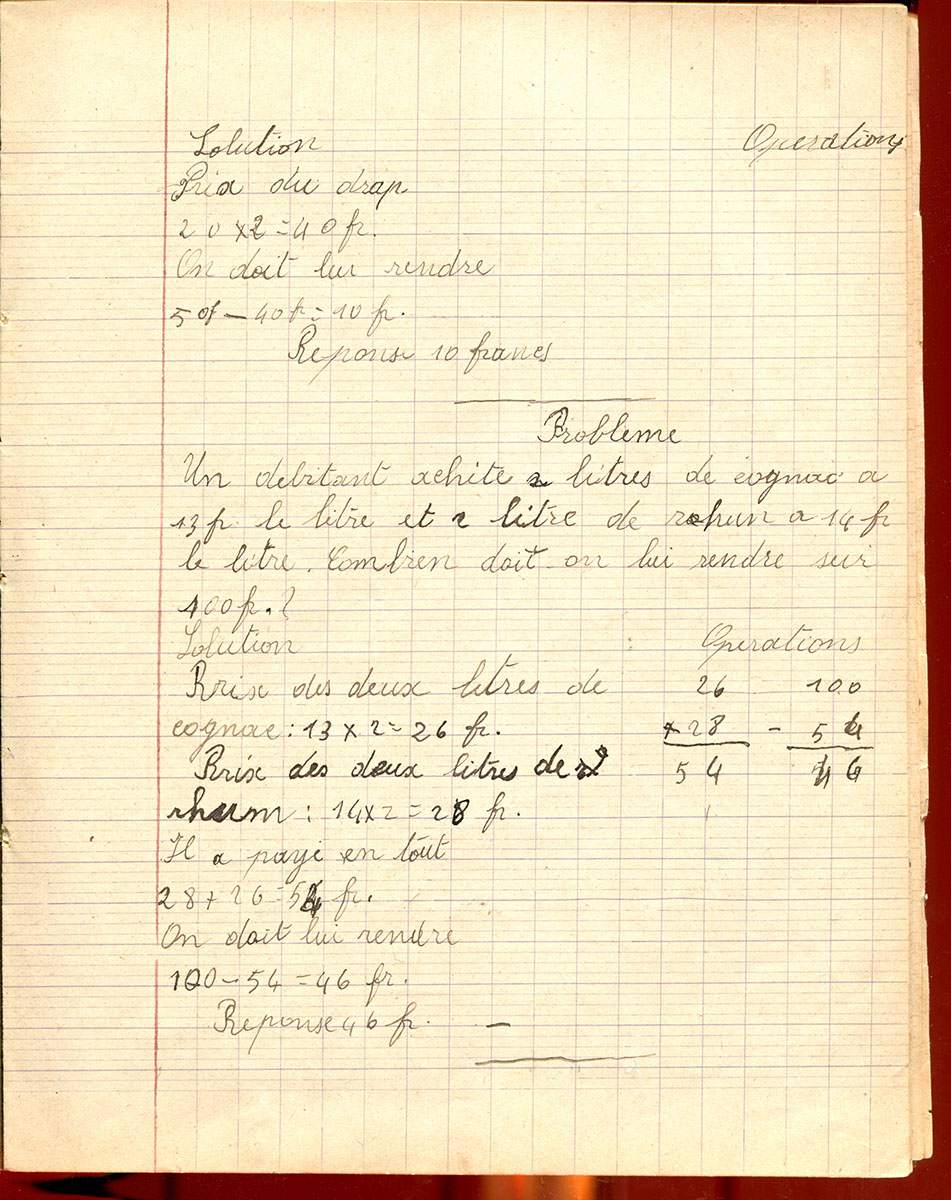 Solution Operations
Prix du drap
20 x 2 = 40 fr.
On doit lui rendre
50f — 40f = 10 fr.
Reponse 10 francs
Probleme
Un debitant achite 2 litres de cognac a
13 fr le litre et 2 litre de rohun a 14 fr
le litre. Combien doit on lui rendre sur
100 fr. ?
Solution Operations
Prix des deux litres de 26 100
cognac : 13 x 2 = 26 fr. x 28 - 54
Prix des deux litres de 54 46
rhum : 14 x 2 = 28 fr.
Il a payé en tout
28 + 26 = 54 fr.
On doit lui rendre
100 - 54 = 46 fr.
Reponse 46 fr. —